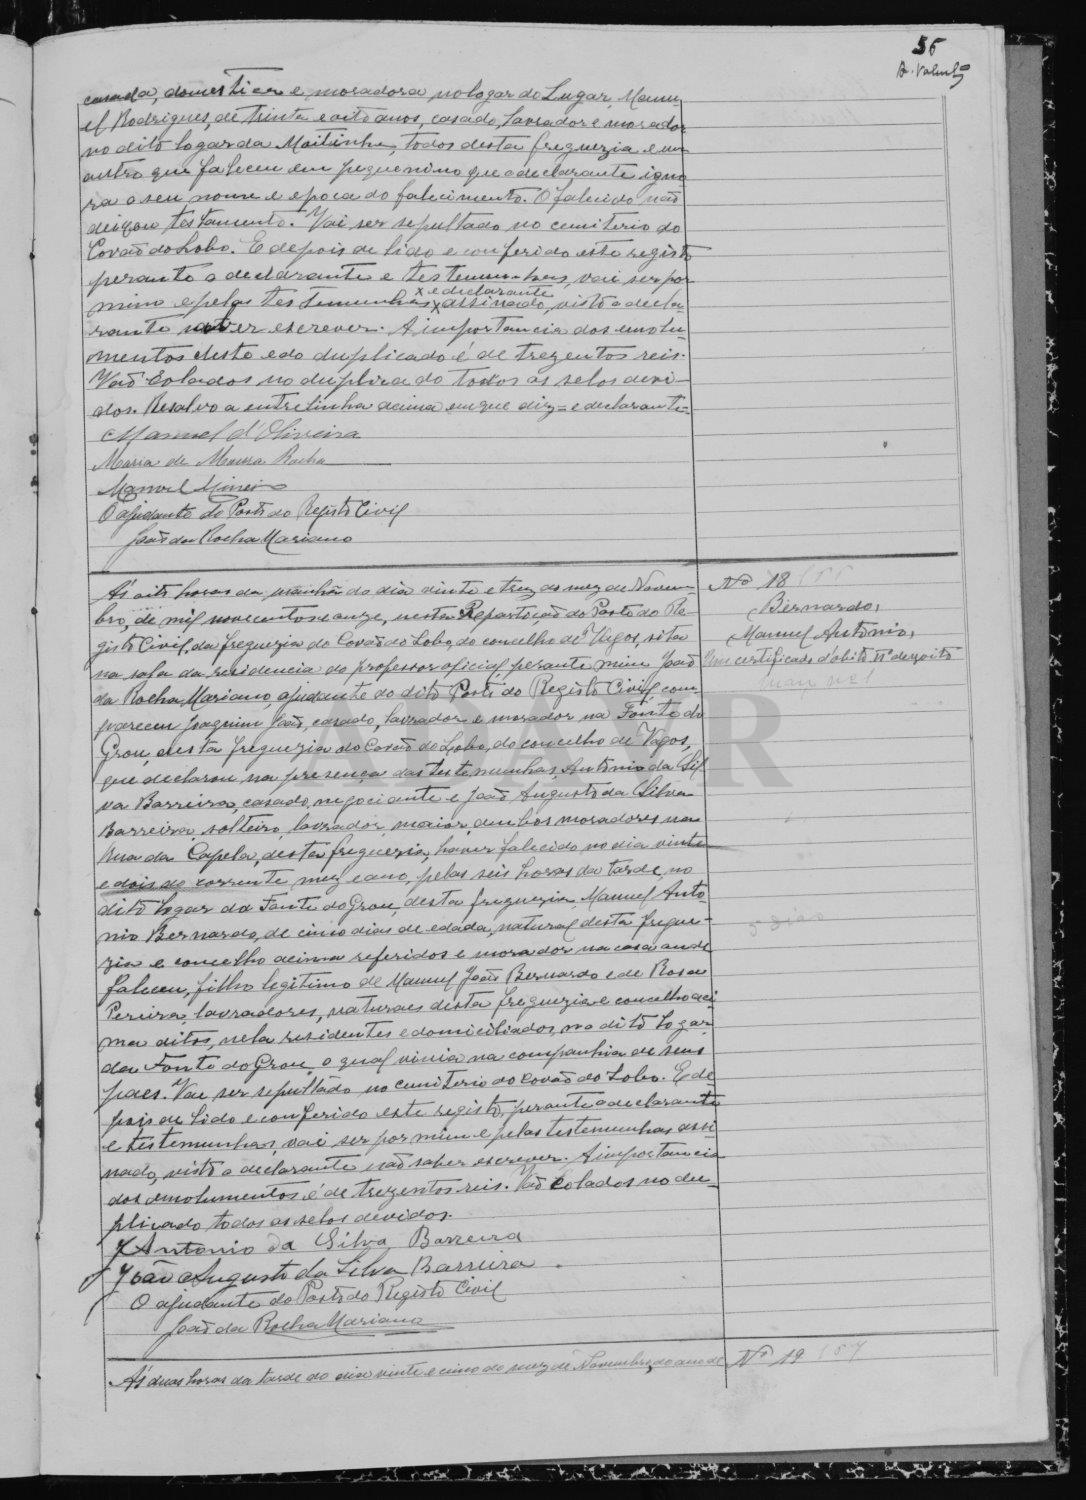 56
casada, domestica e moradora no logar do Lugar, Manu-
el Rodrigues, de trinta e oito anos, casado, lavrador e morador
no dito logar da Moitinha, todos desta freguezia e um
outro que faleceu em pequenino que o declarante igno
ra o seu nome e epoca do falecimento. O falecido não
deixou testamento. Vai ser sepultado no cemiterio do
Covão do Lobo. E depois de lido e conferido este registo
perante o declarante e testemunhas, vai ser por
x e declarante
mim e pelas testemunhas x assinado, visto o decla-
rante saber escrever. A importancia dos emolu-
mentos deste e do duplicado é de trezentos reis.
Vão colados no duplicado todos os selos devi-
dos. Resalvo a entrelinha acima em que diz = e declarante =
Manuel d'Oliveira
Maria de Moura Rocha
Manoel
O ajudante do Posto do Registo Civil
João da Rocha Mariano
Ás oito horas da manhã do dia vinte e trez do mez de Novem-
bro, de mil novecentos e onze, nesta Repartição do Posto do Re-
gisto Civil, da freguezia do Covão do Lobo, do concelho de Vagos, sita
na sala da residencia do professor oficial, perante mim João
da Rocha Mariano, ajudante do dito Posto do Registo Civil, com-
pareceu Joaquim João, casado, lavrador e morador na Fonte do
Grou, desta freguezia do Covão do Lobo, do concelho de Vagos,
que declarou, na presença das testemunhas, Antonio da Sil
va Barreira, casado, negociante e João Augusto da Silva
Barreira, solteiro, lavrador, maior, ambos moradores na
Rua da Capela, desta freguezia, haver falecido no dia vinte
e dois do corrente mez e ano, pelas seis horas da tarde, no
dito logar da Fonte do Grou, desta freguezia, Manuel Anto-
nio Bernardo, de cinco dias de edade, natural desta fregue-
zia e concelho acima referidos e morador na casa onde
faleceu, filho legitimo de Manuel João Bernardo e de Rosa
Pereira, lavradores, naturaes desta freguezia e concelho aci
ma ditos, nela residentes e domiciliados, no dito logar
da Fonte do Grou, o qual vivia na companhia de seus
paes. Vae ser sepultado no cemiterio do Covão do Lobo. E de
pois de lido e conferido este registo, perante o declarante
e testemunhas, vai ser por mim e pelas testemunhas assi-
nado, visto o declarante não saber escrever. A importancia
dos emolumentos é de trezentos reis. Vão colados no du-
plicado todos os selos devidos.
Antonio da Silva Barreira
João Augusto da Silva Barreira
O ajudante do Posto do Registo Civil
João da Rocha Mariano
Nº 18
Bernardo,
Manuel Antonio,
Um certificado d'obito nº dezoito
manuel
5 dias
Ás duas horas da tarde do dia vinte e cinco do mez de Novembro do ano de
Nº 19
ADAVR